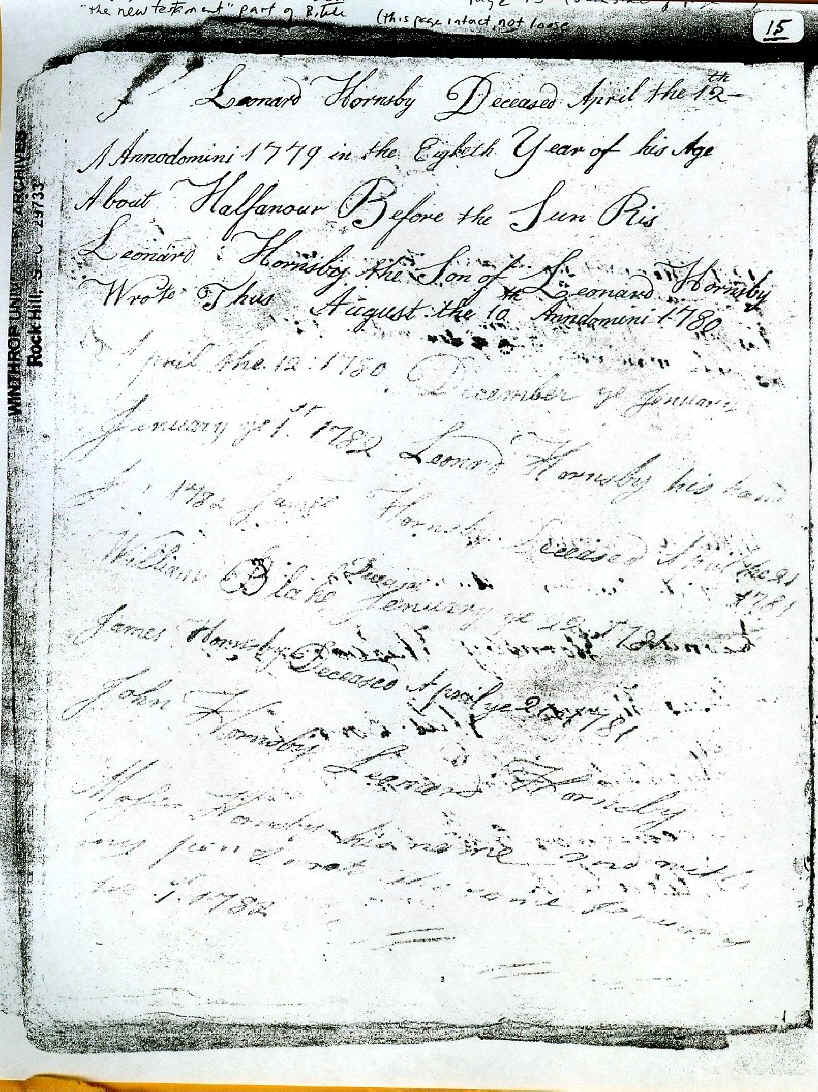 "the new testament" part of Bible
(this page intact, not loose
15
WINTHROP UNIVERSITY ARCHIVES
Rock Hill, S.C. 29733
Leonard Hornsby Deceased April the 12th
A Annodomini 1779 in the Eigheth Year of his Age
About Halfanour Before the Sun Ris
Leonard Hornsby the Son of Leonard Hornsby
Wrote Thus August the 10th Anndomini 1780
April the 12 1780 December ye January
January ye 1st 1782 Leonard Hornsby his hand
1782 James Hornsby Deceased April the 21
1781
William Blake January ye 1782
James Hornsby Deceased April ye 21 1781
John Hornsby Leonard Hornsby
Hornsby his name and with
my pen I wrote the same January
the 1st 1782